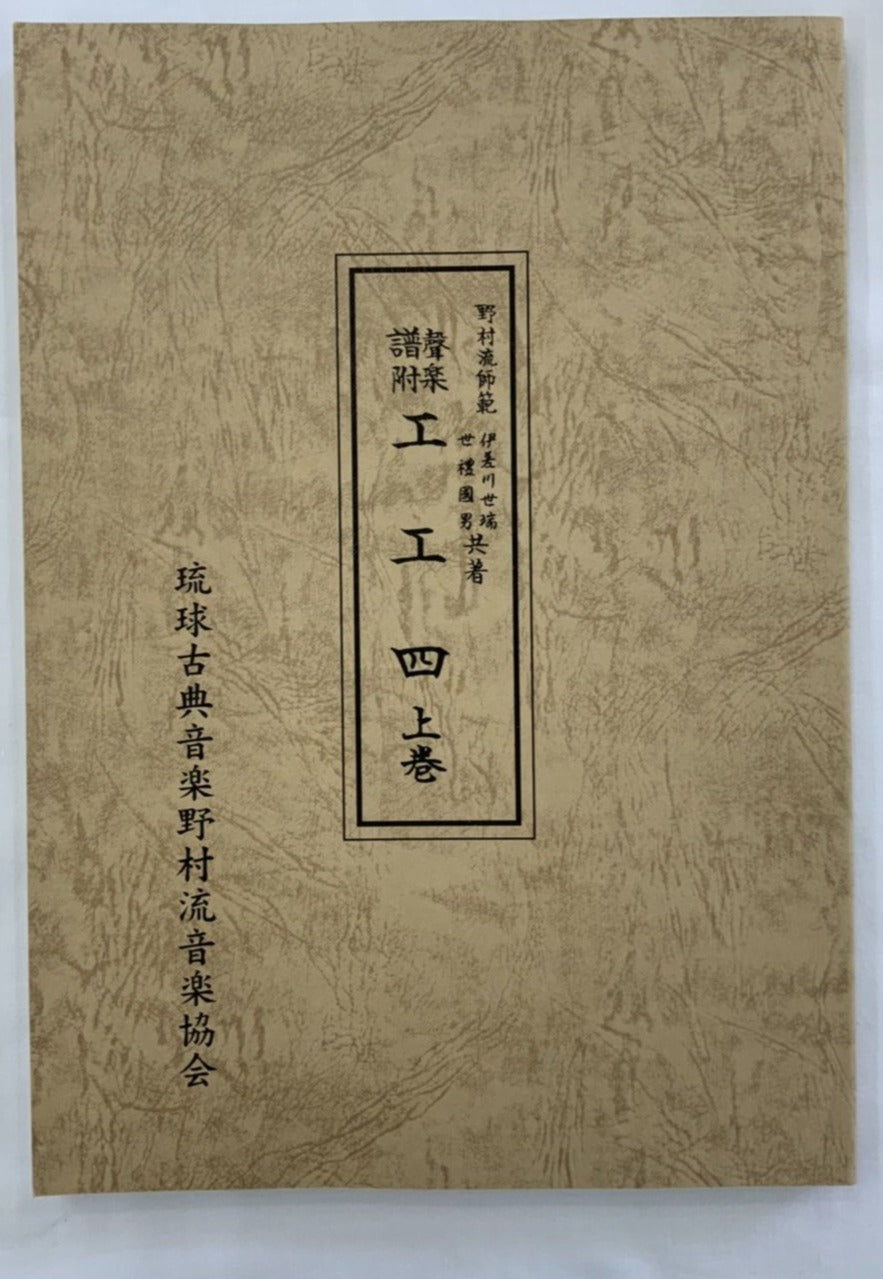 野村流師範 伊差川世瑞 世禮國男 共著
聲楽譜附 工工四 上巻
琉球古典音楽野村流音楽協会